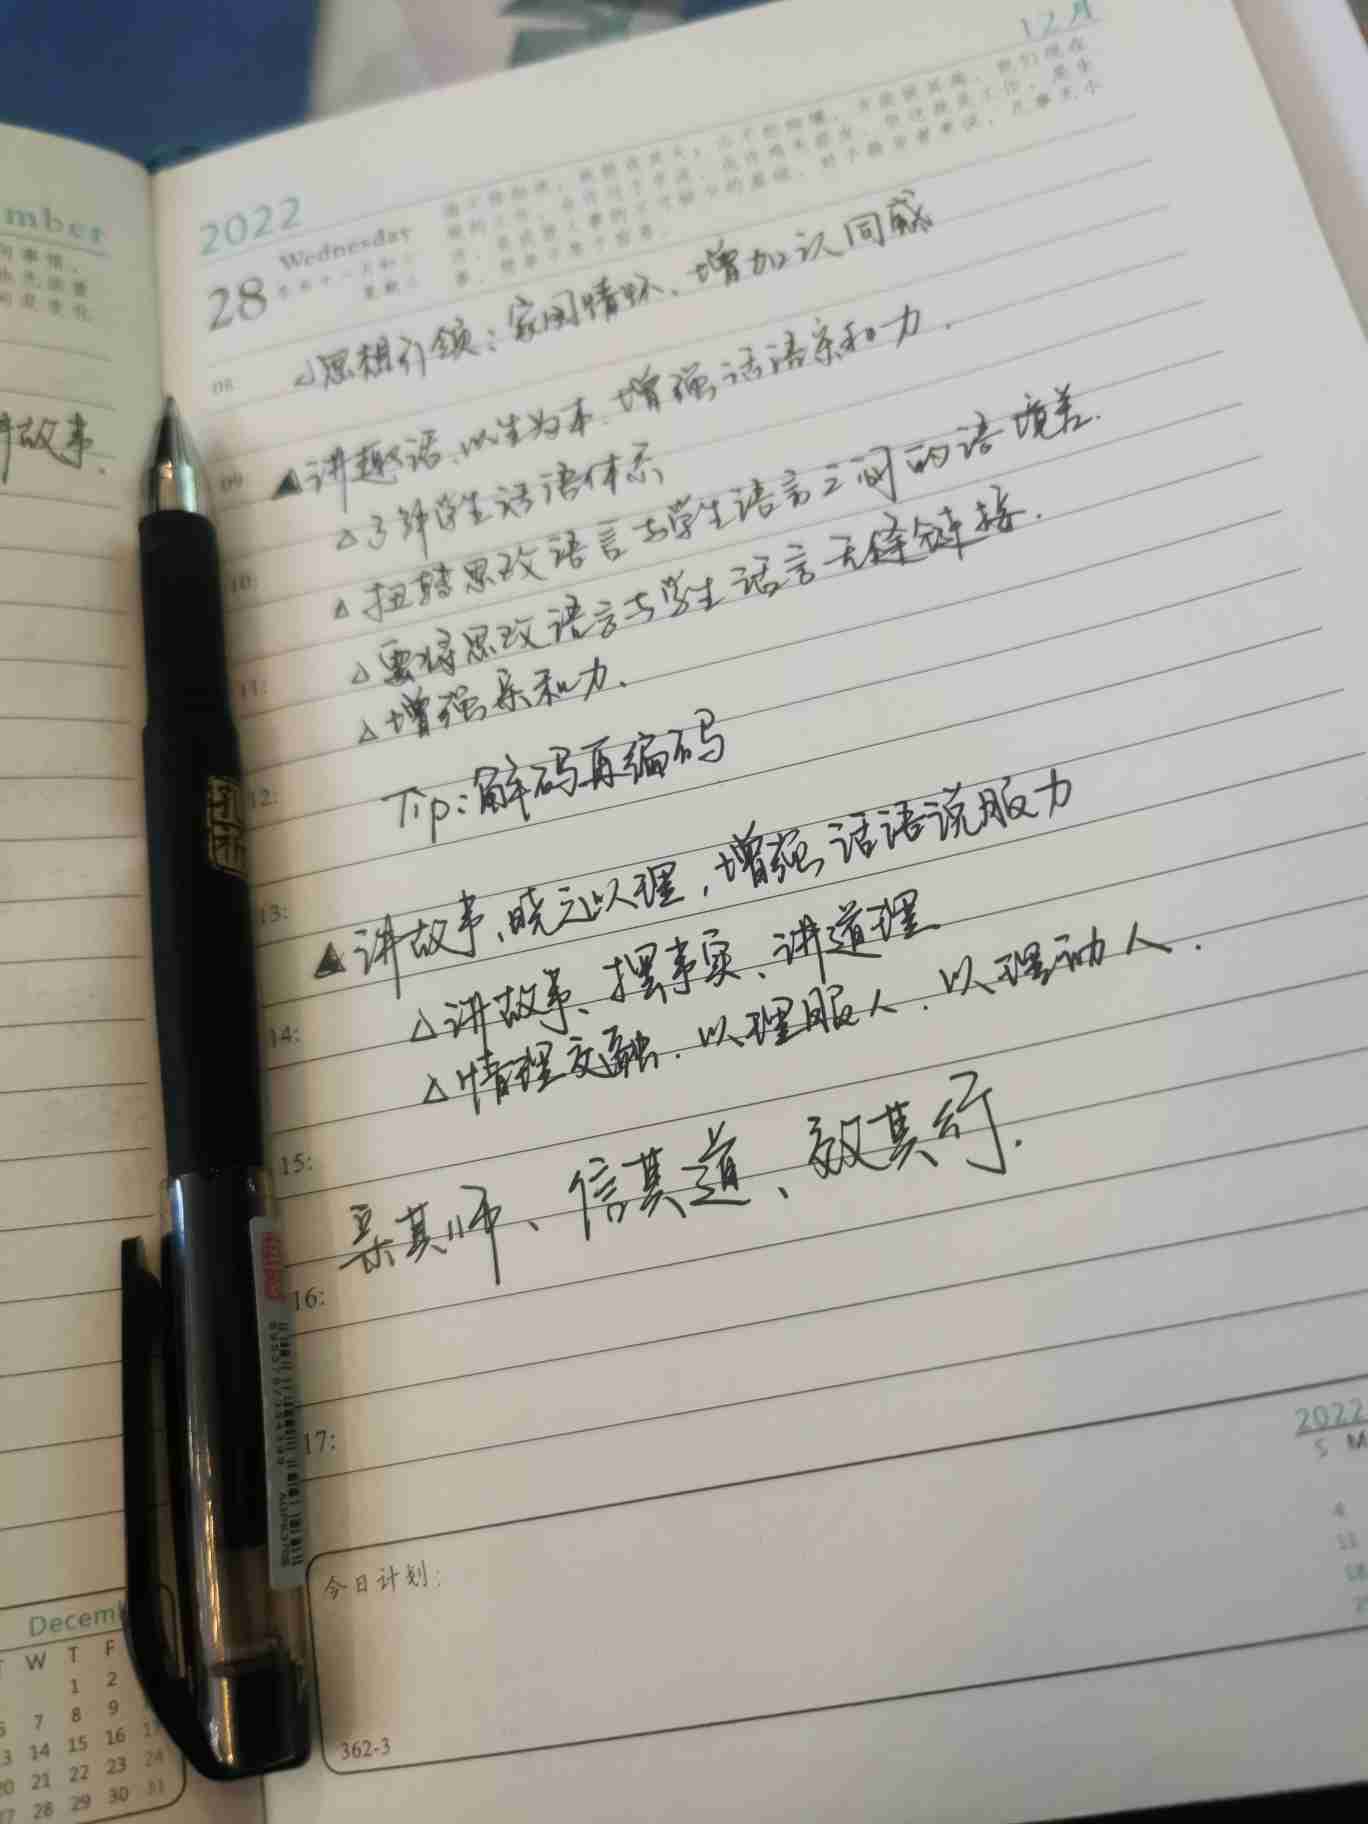 mber
讲故事、
12月
2022
28 Wednesday
△思想引领：家国情怀、增加认同感
08:
09: ▲讲趣话、以生为本、增强话语亲和力.
△了解学生话语体系
10: △扭转思政语言与学生语言之间的语境差.
11: △要将思政语言与学生话语言无缝链接.
△增强亲和力.
12: Tip:解码再编码
13: ▲讲故事、晓之以理,增强话语说服力
△讲故事、摆事实、讲道理
14: △情理交融.以理服人.以理动人.
15:
亲其师、信其道、效其行.
16:
17:
孔祈
今日计划:
362-3
2022
S M
4
11
18
Decem
T W T F
1 2
6 7 8 9
13 14 15 16 17
20 21 22 23 24
27 28 29 30 31